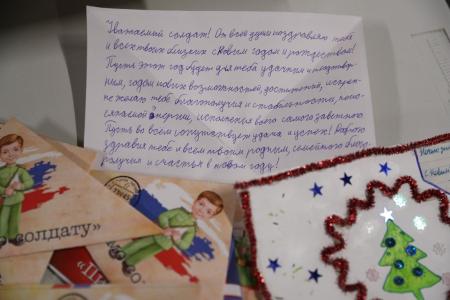 Уважаемый солдат! От всей души поздравляю тебя
и всех твоих близких с Новым годом и рождеством!
Пусть этот год будет для тебя удачным и
ным, годом новых возможностей, достижений,
не желаю тебе благополучия и стабильности,
энергии, исполнения всего самого заветного.
Пусть во всем сопутствует удача и успех! Доброго
здравия тебе и всем твоим родным, семейного благо-
получия и счастья в новом году!
о солдату»
«П
о солдату
С Новым